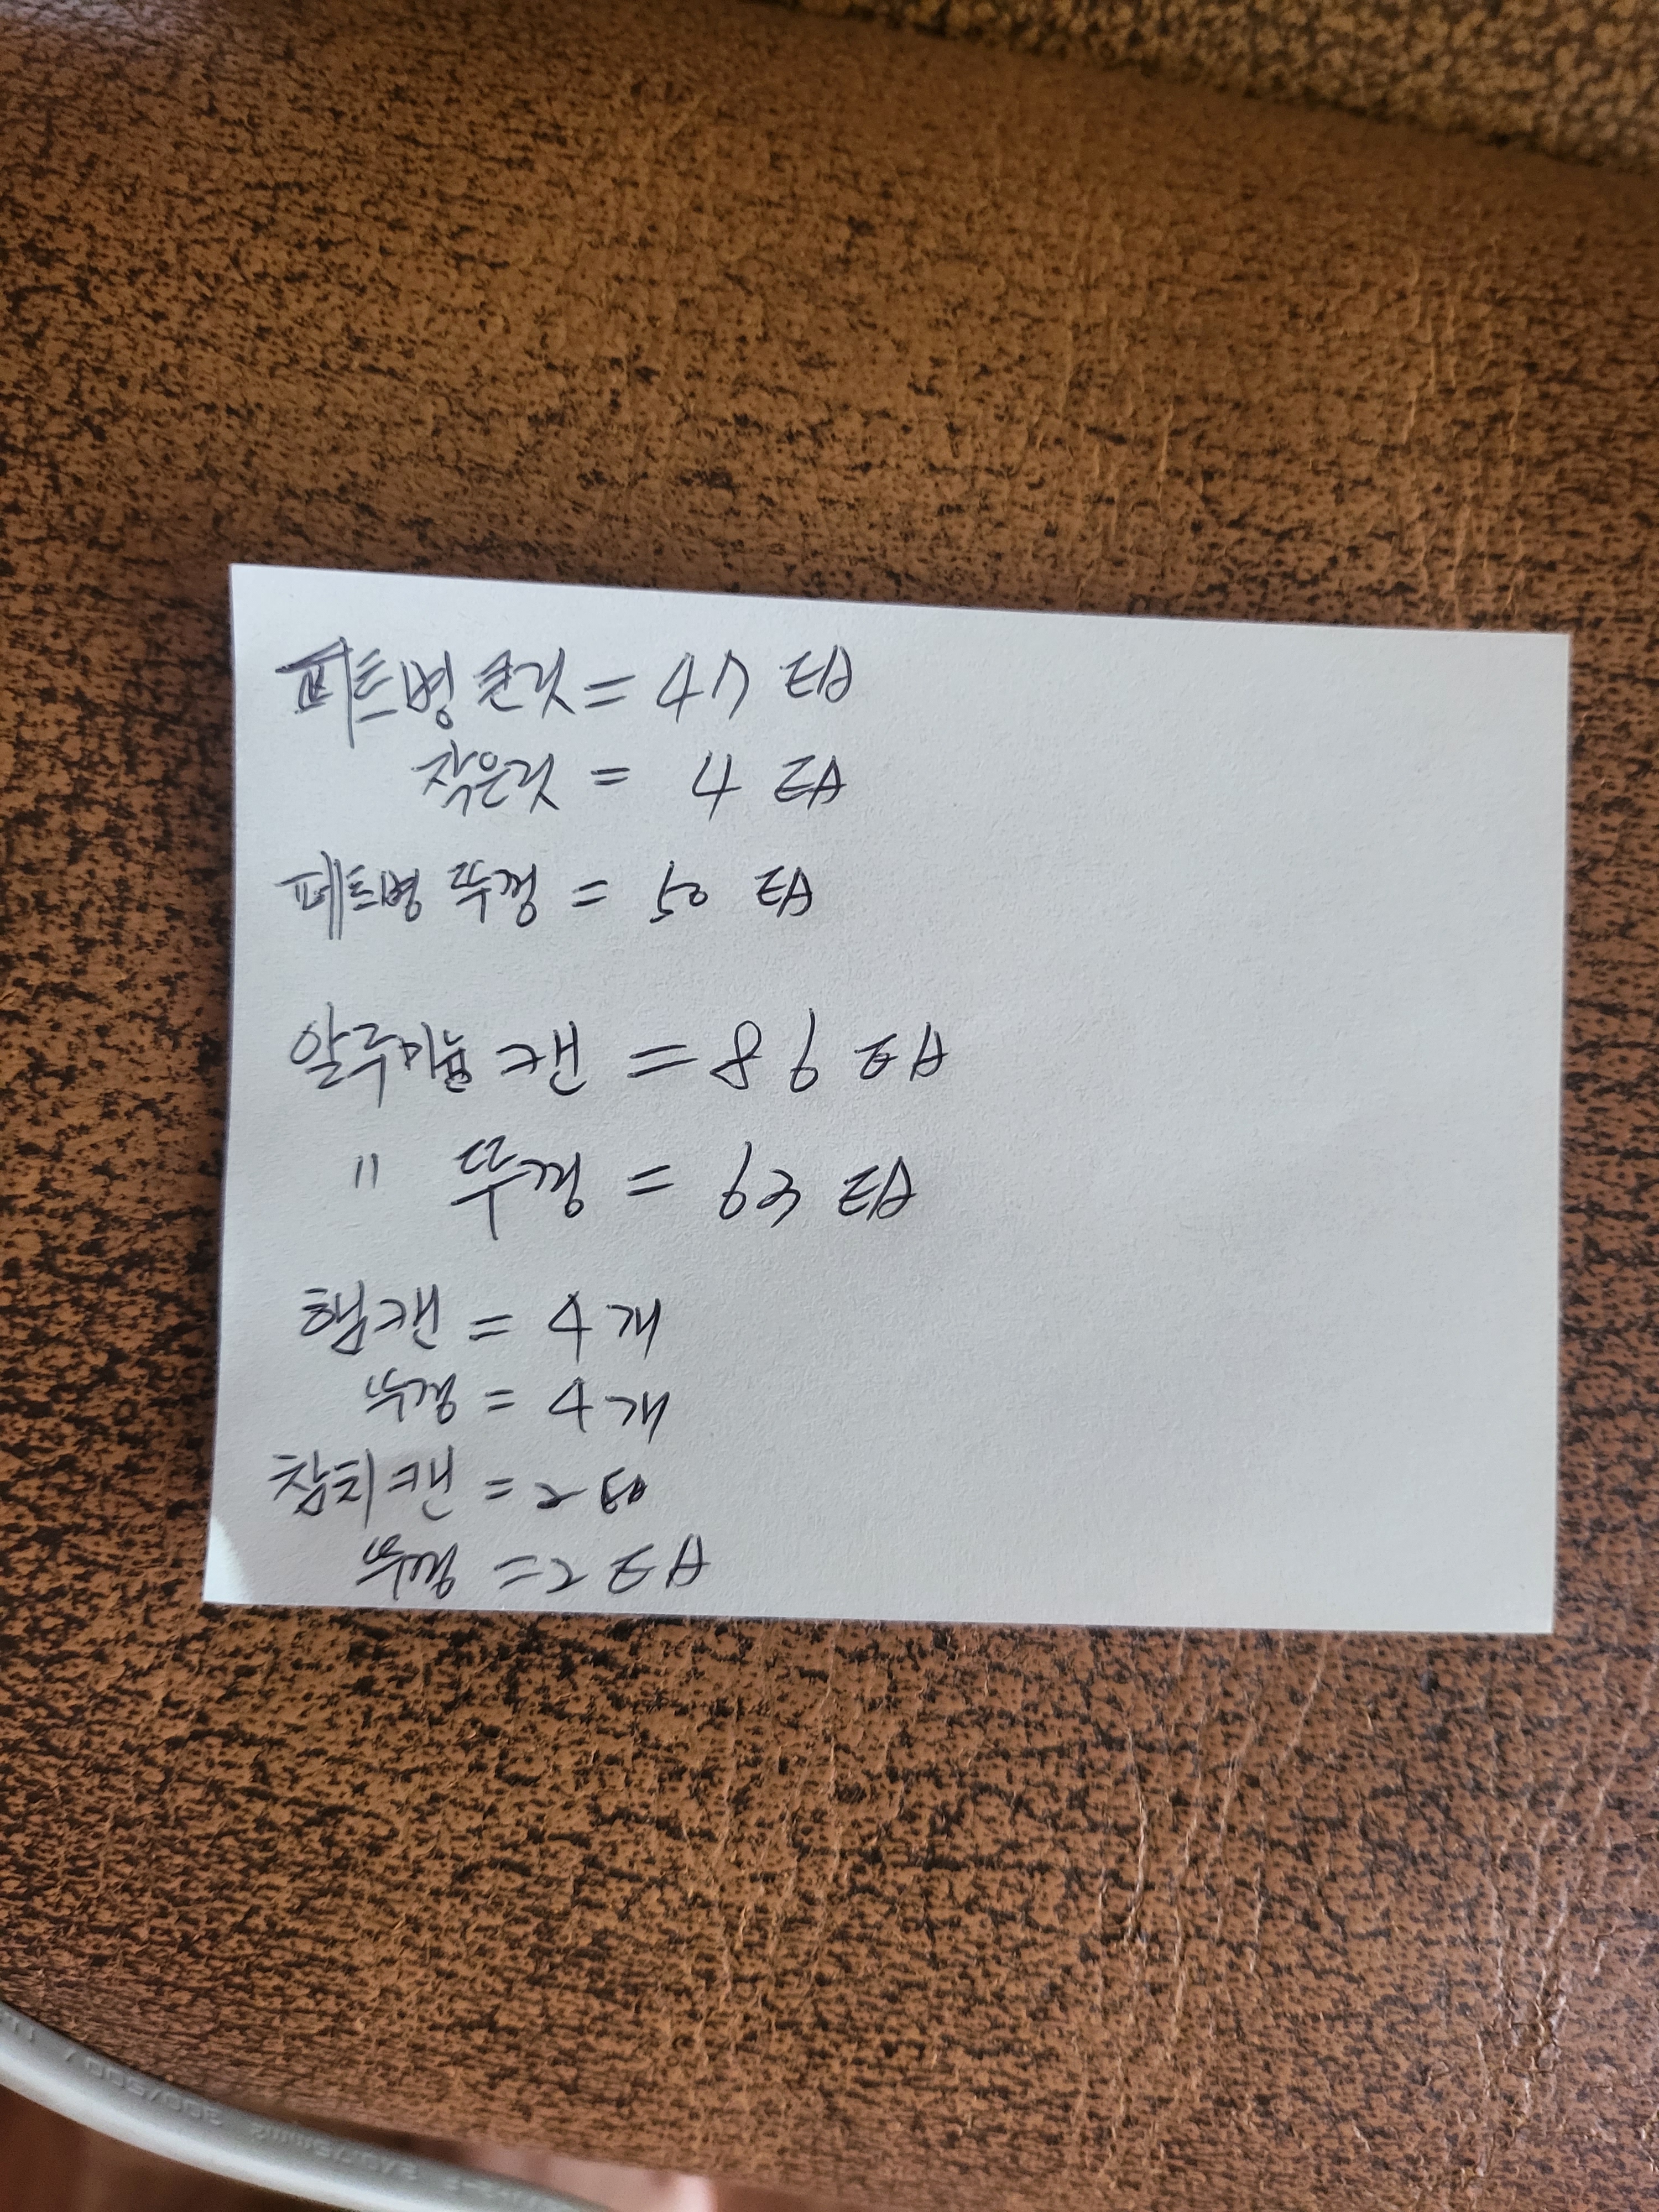 페트병 큰것 = 47 EA
작은것 = 4 EA
페트병 뚜껑 = 50 EA
알루미늄 캔 = 86 EA
〃 뚜껑 = 63 EA
햄캔 = 4개
뚜껑 = 4개
참치캔 = 2 EA
뚜껑 = 2 EA